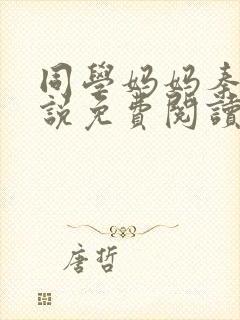 同學媽媽秦
說免費閱讀
唐哲